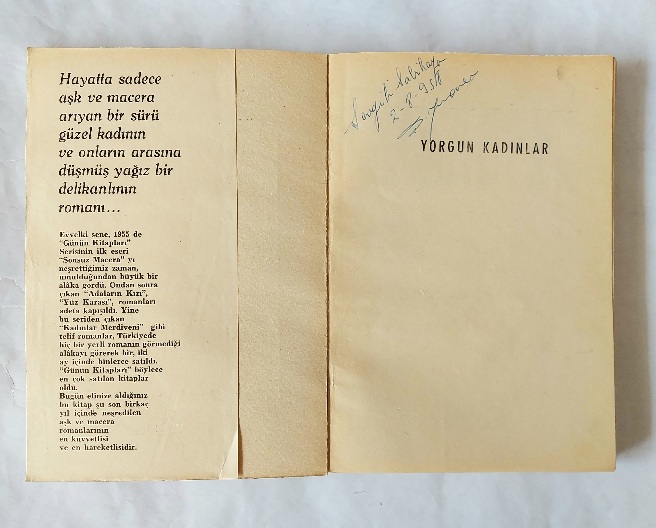 Hayatta sadece
aşk ve macera
arıyan bir sürü
güzel kadının
ve onların arasına
düşmüş yağız bir
delikanlının
romanı...
Evvelki sene, 1955 de
"Günün Kitapları"
Serisinin ilk eseri
"Sonsuz Macera" yı
neşrettiğimiz zaman,
umulduğundan büyük bir
alâka gördü. Ondan sonra
çıkan "Adaların Kızı",
"Yüz Karası", romanları
adeta kapışıldı. Yine
bu seriden çıkan
"Kadınlar Merdiveni" gibi
telif romanlar, Türkiyede
hiç bir yerli romanın görmediği
alâkayı görerek bir, iki
ay içinde binlerce satıldı.
"Günün Kitapları" böylece
en çok satılan kitaplar
oldu.
Bugün elinize aldığınız
bu kitap şu son birkaç
yıl içinde neşredilen
aşk ve macera
romanlarının
en kuvvetlisi
ve en hareketlisidir.
2-8-958
YORGUN KADINLAR